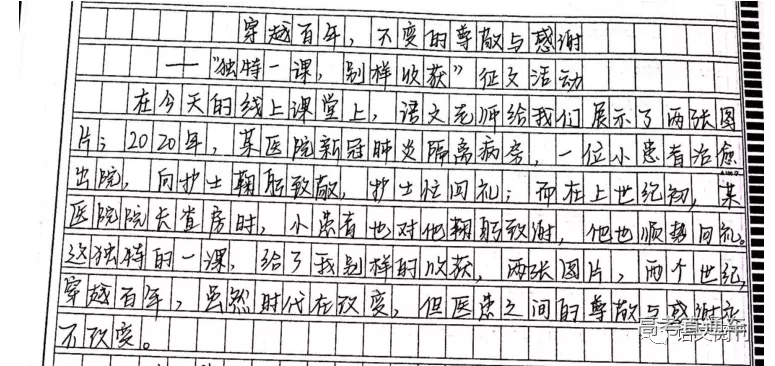 穿越百年，不变的尊敬与感谢
——“独特一课，别样收获”征文活动
在今天的线上课堂上，语文老师给我们展示了两张图
片：2020年，某医院新冠肺炎隔离病房，一位小患者治愈
出院，向护士鞠躬致敬，护士位回礼；而在上世纪初，某
医院院长查房时，小患者也对他鞠躬致谢，他也顺势回礼。
这独特的一课，给了我别样的收获，两张图片，两个世纪，
穿越百年，虽然时代在改变，但医患之间的尊敬与感谢永
不改变。